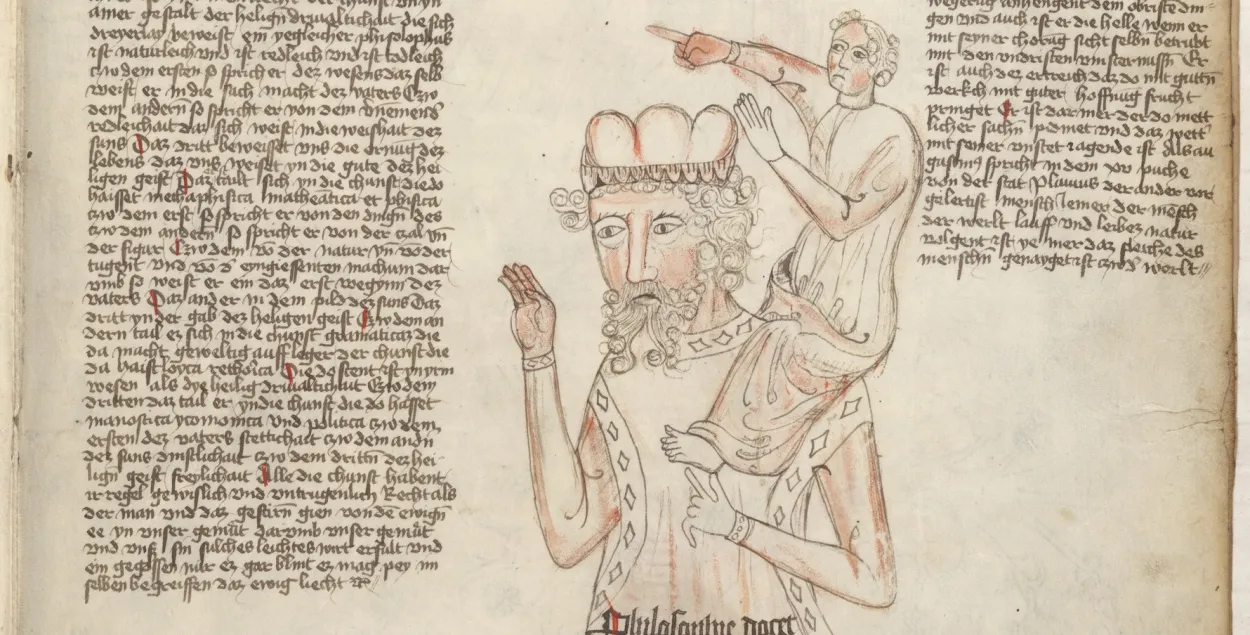 amer gestalt der heilign drivaltichait die sich
dreyerlay beweist ein yegleicher philosophus
ist naturleich vnd ist redleich vnd ist
czwdem ersten so spricht er dez wesens daz selb
weist er in die sach macht dez vaters Czw
dem andern so spricht er von dem
redleichait daz sich weist in die weishait dez
suns Daz dritt beweiset vns die ornug dez
lebens daz vns weiset yn die gute dez hei
ligen geist Daz tailt sich yn die chunst die do
haisset methaphisica matheatica et phisica
czw dem erst so spricht er von den dingn des
czw dem andern so spricht er von der czal vn
der figur Czw dem vo der natur yn vo der
tugent vnd vo d eyngiessenten machum dar
vmb so weist er ein daz erst wegynn dez
vaters Daz ander in dem pild dez suns Daz
dritt yn der gab dez heiligen geist Czwdem an
dern tail ez sich yn die chunst gramatica die
da macht geweltig aufleger der chunst die
da haist loyca rethorica Die do stent ist ynyrm
wesen als dye heilig drivaltichait Czwdem
dritten daz tail er yndie chunst die do hasset
manostica yconomica vnd politica czw dem
ersten dez vaters stettichait czw dem andn
dez suns chistlichait czw dem dritten dez hei
lign geist freylichait Alle die chunst habent
ir regel gewislich vnd vntrugenlich Recht als
der man vnd daz gestirn gien von de ewign
ee yn vnser gemut darvmb vnser gemut
vnd vnß sin sulches leichtes wirt erfult vnd
ein gegossen nur ez gar blint ez mag pey im
selben begreiffen daz ewig liecht
anhengent dem obriste din
gen vnd auch ist er die helle wenn er
mit seyner sicht selbn betrubt
mit den vndristen vinsternussn Er
ist auch dez ertreich daz do mit gutn
werkch mit guter hoffnug frucht
pringet Er ist dar mer der do mett
licher sachn vnd daz wett
mit seiner vnstet ist Als au
gustinus spricht in dem xv puche
von der stat Plauius der ander vor
gelertist mensch einer der mesch
der werlt lauff vnd leibez natur
volgent ist ye mer daz fleische des
menschn genayget ist czwd werlt
Philosophus docet